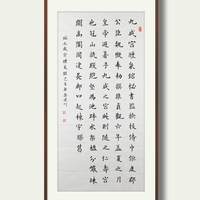 九成宮醴泉銘秘書監檢校侍中鉅鹿郡
公臣魏徵奉勅撰維貞觀六年孟夏之月
皇帝避暑乎九成之宮此則隨之仁壽宮
也冠山抗殿絕壑為池跨水架楹分巖聳
闕高閣周建長廊四起棟宇膠葛